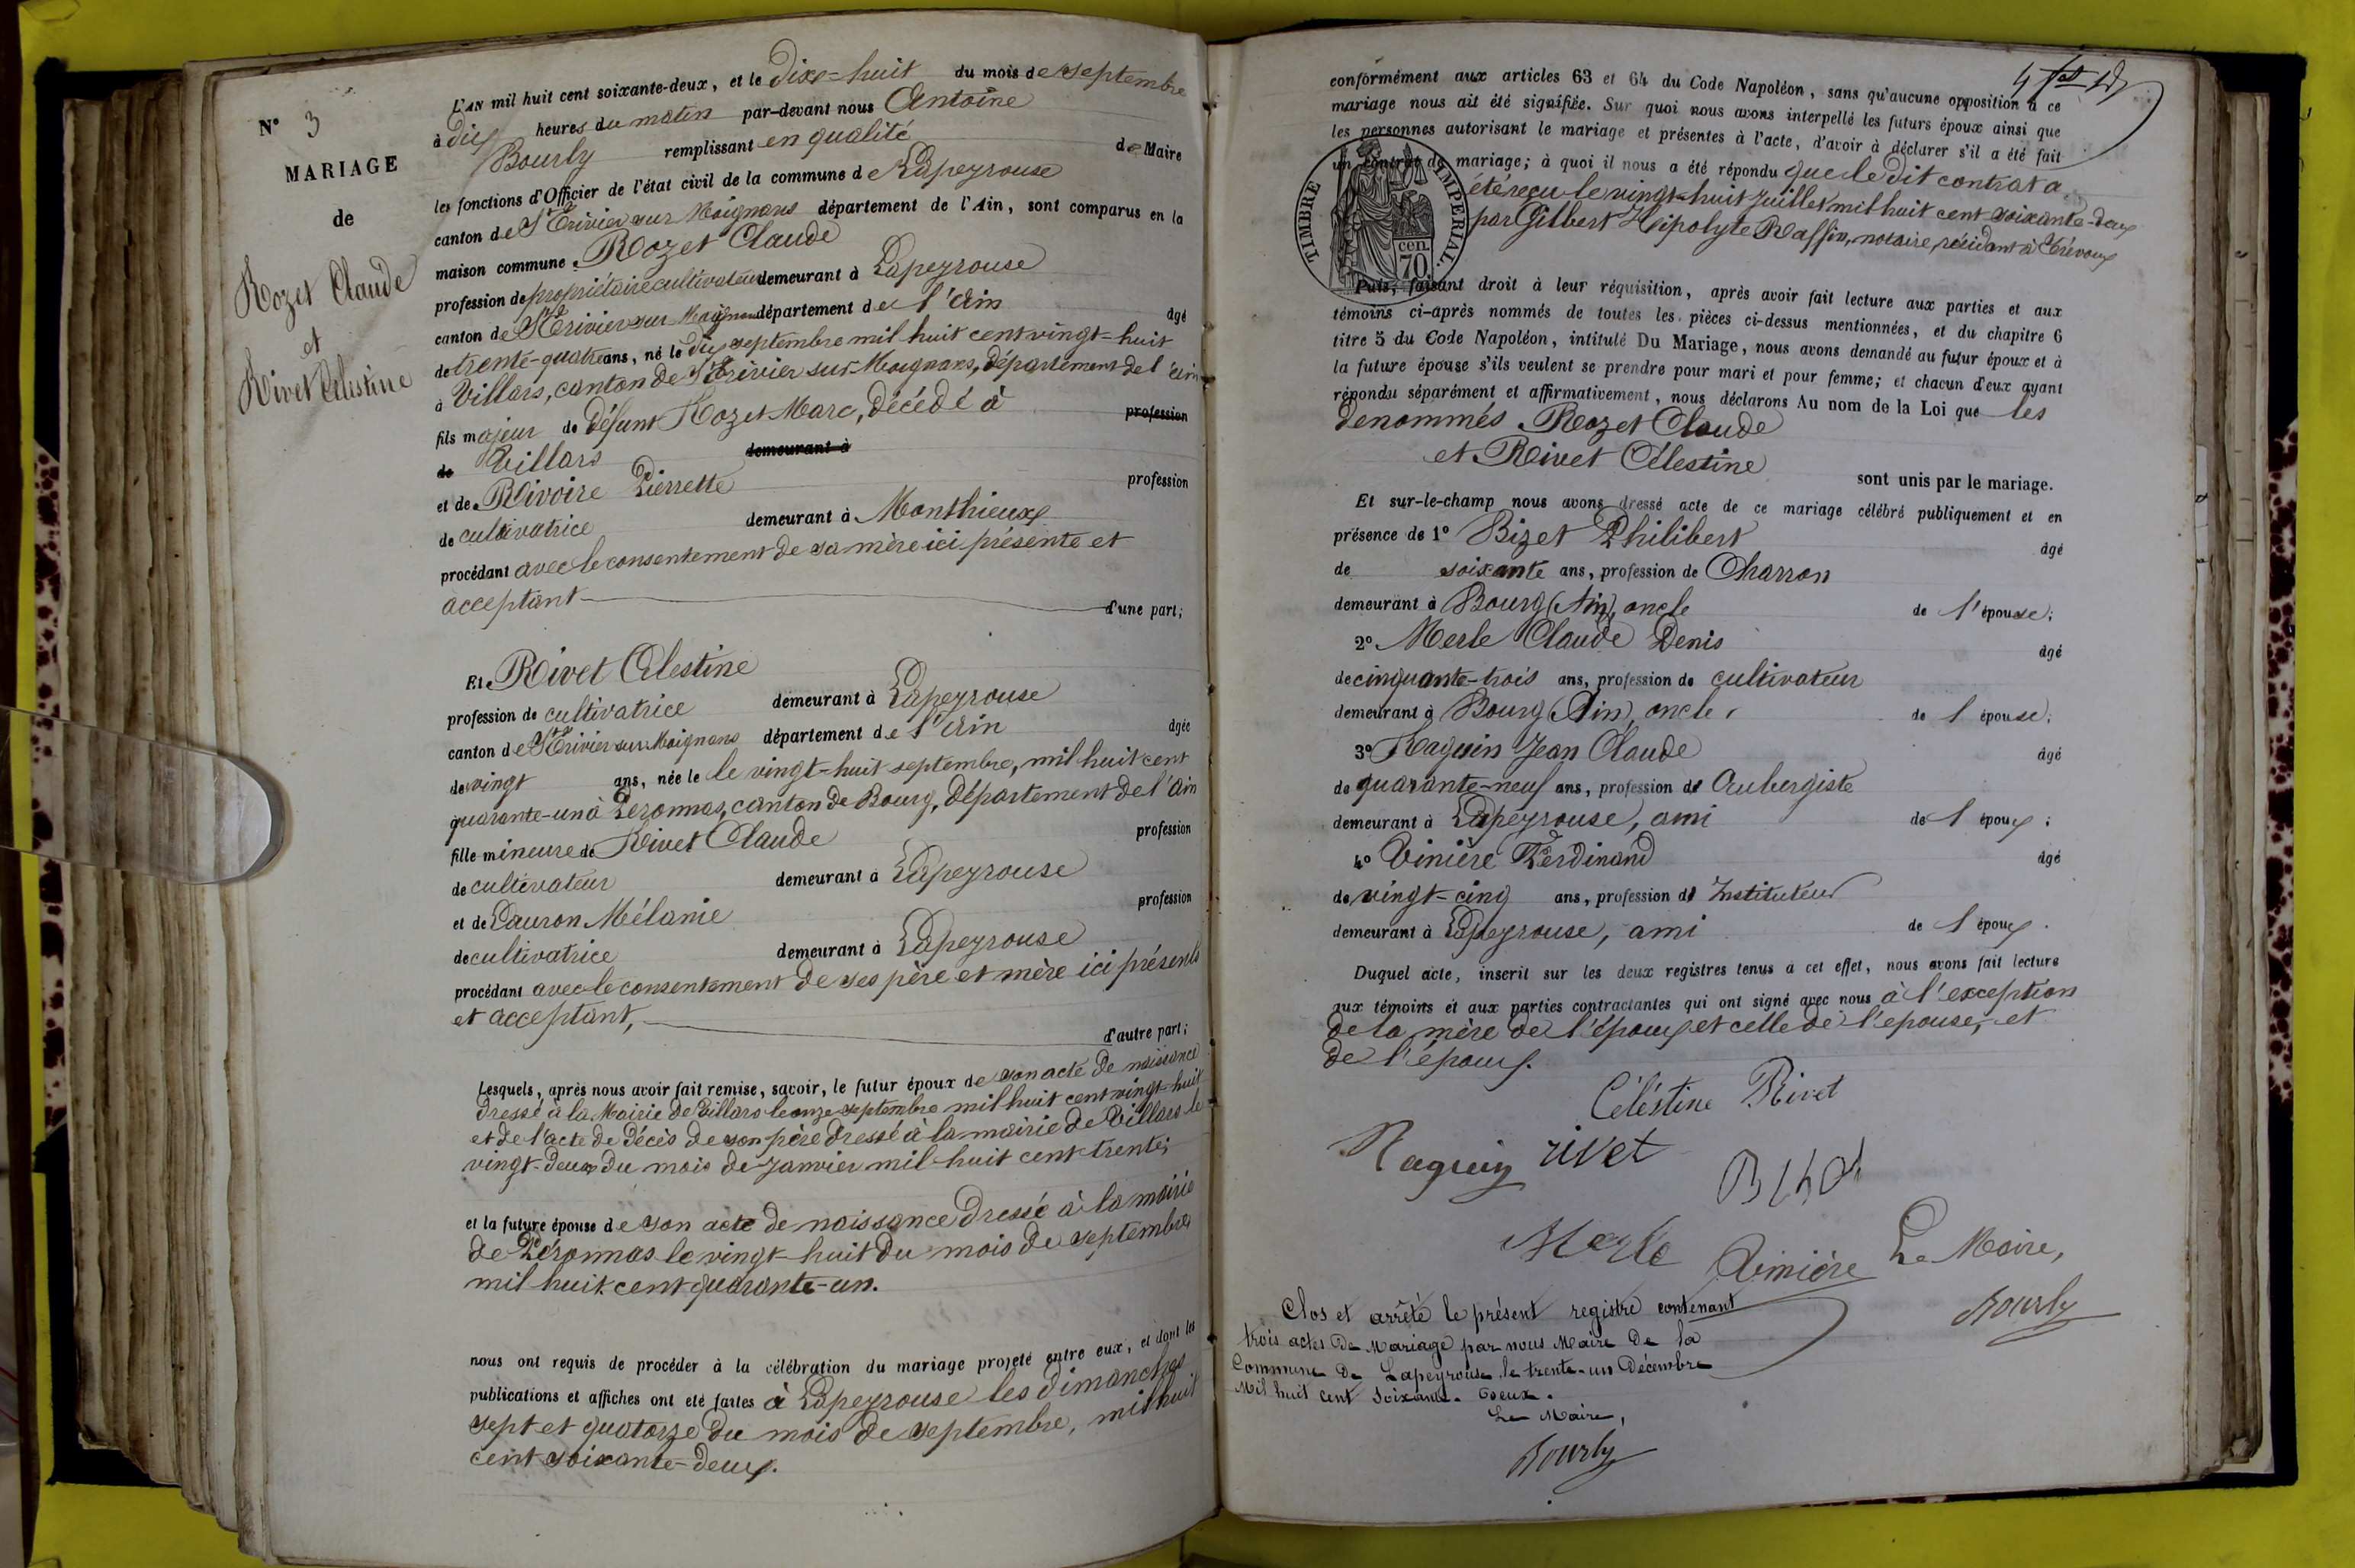 N° 3
MARIAGE
de
Rozet Claude
et
Rivet Célestine
L'AN mil huit cent soixante-deux, et le Dixe-huit du mois de septembre
à dix heures du matin par-devant nous Antoine
Bourly remplissant en qualité de Maire
les fonctions d'Officier de l'état civil de la commune de Lapeyrouse
canton de St Trivier sur Moignans département de l'Ain, sont comparus en la
maison commune. Rozet Claude
profession de propriétaire cultivateur demeurant à Lapeyrouse
canton de St Trivier sur Moignans département de l'Ain âgé
de trente-quatre ans, né le dix septembre mil huit cent vingt-huit
à Villars, canton de St Trivier sur Moignans, Département de l'Ain
fils majeur de Défunt Rozet Marc, Décédé à profession
de Villars demeurant à
et de Rivoire Pierrette profession
de cultivatrice demeurant à Monthieux
procédant avec le consentement de sa mère ici présente et
acceptant d'une part;
Et Rivet Célestine
profession de cultivatrice demeurant à Lapeyrouse
canton de St Trivier sur Moignans département de l'Ain âgée
de vingt ans, née le le vingt-huit septembre, mil huit cent
quarante-un à Peronnas, canton de Bourg, Département de l'Ain
fille mineure de Rivet Claude profession
de cultivateur demeurant à Lapeyrouse
et de Pauron Mélanie profession
de cultivatrice demeurant à Lapeyrouse
procédant avec le consentement de ses père et mère ici présents
et acceptant, d'autre part;
Lesquels, après nous avoir fait remise, savoir, le futur époux de son acte de naissance
Dressé à la Mairie de Villars le onze septembre mil huit cent vingt-huit
et de l'acte de Décès de son père Dressé à la mairie de Villars le
vingt-deux du mois de Janvier mil-huit cent trente;
et la future épouse de son acte de naissance Dressé à la mairie
de Péronnas le vingt-huit Du mois de septembre
mil huit cent quarante-un.
nous ont requis de procéder à la célébration du mariage projeté entre eux, et dont les
publications et affiches ont été faites à Lapeyrouse les Dimanches
sept et quatorze Du mois de septembre, mil huit
cent soixante-deux.
conformément aux articles 63 et 64 du Code Napoléon, sans qu'aucune opposition à ce
mariage nous ait été signifiée. Sur quoi nous avons interpellé les futurs époux ainsi que
les personnes autorisant le mariage et présentes à l'acte, d'avoir à déclarer s'il a été fait
un contrat de mariage; à quoi il nous a été répondu que le dit contrat a
été reçu le vingt-huit Juillet mil huit cent soixante-deux
par Gilbert Hipolyte Raffin, notaire, résidant à Trévoux
TIMBRE IMPERIAL.
70 cen.
Puis, faisant droit à leur réquisition, après avoir fait lecture aux parties et aux
témoins ci-après nommés de toutes les pièces ci-dessus mentionnées, et du chapitre 6
titre 5 du Code Napoléon, intitulé Du Mariage, nous avons demandé au futur époux et à
la future épouse s'ils veulent se prendre pour mari et pour femme; et chacun d'eux ayant
répondu séparément et affirmativement, nous déclarons Au nom de la Loi que les
dénommés Rozet Claude
et Rivet Célestine
sont unis par le mariage.
Et sur-le-champ nous avons dressé acte de ce mariage célébré publiquement et en
présence de 1° Bizet Philibert âgé
de soixante ans, profession de Charron
demeurant à Bourg (Ain), oncle de l'épouse;
2° Merle Claude Denis âgé
de cinquante-trois ans, profession de cultivateur
demeurant à Bourg (Ain), oncle, de l épouse;
3° Raguin Jean Claude âgé
de quarante-neuf ans, profession de Aubergiste
demeurant à Lapeyrouse, ami de l époux;
4° Vinière Ferdinand âgé
de vingt-cinq ans, profession de Instituteur
demeurant à Lapeyrouse, ami de l époux.
Duquel acte, inscrit sur les deux registres tenus à cet effet, nous avons fait lecture
aux témoins et aux parties contractantes qui ont signé avec nous à l'exception
de la mère de l'époux et celle de l'epouse, et
de l'époux.
Céléstine Rivet
Raguin rivet
Merle Vinière Le Maire,
Bourly
Clos et arrêté le présent registre contenant
trois actes De Mariage par nous Maire De la
Commune De Lapeyrouse le trente-un Décembre
Mil huit cent soixante-Deux.
Le Maire,
Bourly